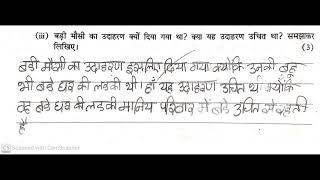 (iii) बड़ी मौसी का उदाहरण क्यों दिया गया था? क्या यह उदाहरण उचित था? समझाकर
लिखिए। (3)
बडी मौसी का उदाहरण इसलिए दिया गया क्योंकि उनकी बहू
भी बडे घर की लडकी थी। हाँ यह उदाहरण उचित था क्योंकि
वह बडे घर की लडकी परिवार में बडे उचित से रहती
है
Scanned with CamScanner